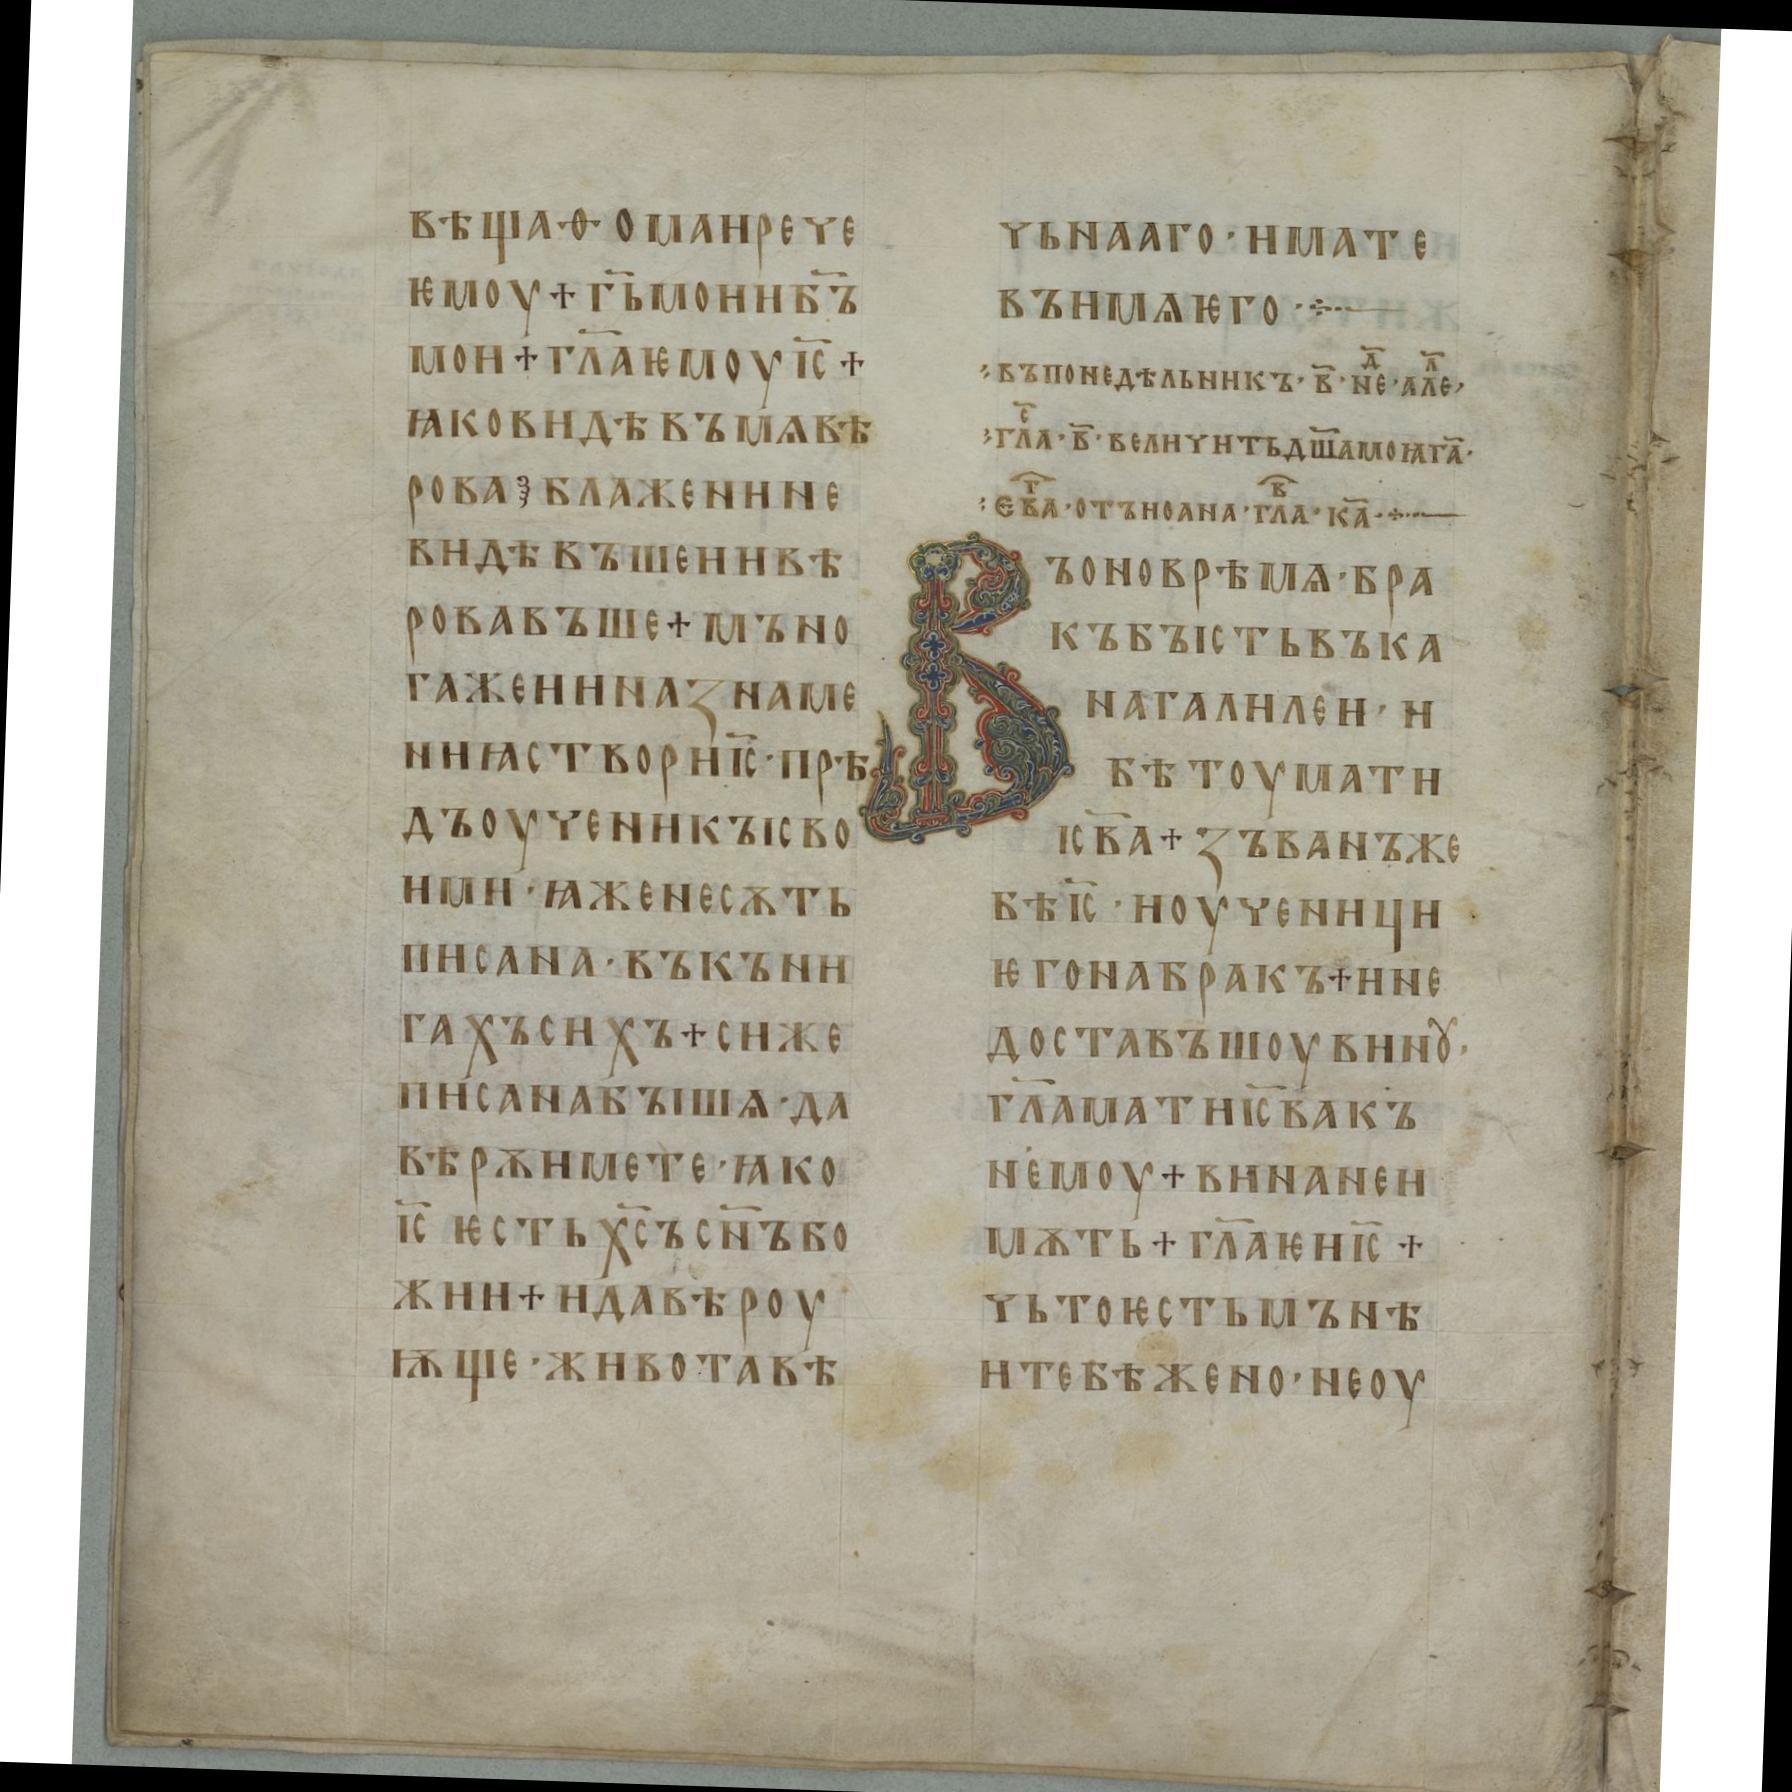 вѣща·ѳ·оманрече
ѥмоу+г҃ьмоиіб҃ъ
мои+гл҃аѥмоуіс҃+
ꙗковидѣвъмѧвѣ
рова𝼁блажении не
видѣвъшеиивѣ
ровавъше+мъно
гажеииназнаме
ниꙗствориіс҃·прѣ
дъоученикꙑсво
ими·ꙗженесѫть
писана·въкъни
гахъсихъ+сиже
писанабꙑшѧ·да
вѣрѫимете·ꙗко
іс҃ ѥстьхс҃ъсн҃ъбо
жии+идавѣроу
ѭще·животавѣ
чьнааго·имате
въимѧѥго·÷··—
:въпонедѣльникъ·в҃·неⷣ·алеⷧ·
:глаⷭ·в҃·величитьдш҃амоꙗга҃·
:Єв҃аⷢ·отъиоана·глаⷡ·ка҃·÷··—
Въоноврѣмѧ·бра
къбꙑстьвъка
нагалилеи·и
бѣтоумати
ісв҃а+зъванъже
бѣіс҃·иоученици
ѥгонабракъ+ине
доставъшоувинꙋ·
гл҃аматиіс҃вакъ
немоу+винанеи
мѫть+гл҃аѥиіс҃+
чьтоѥстьмънѣ
итебѣжено·неоу